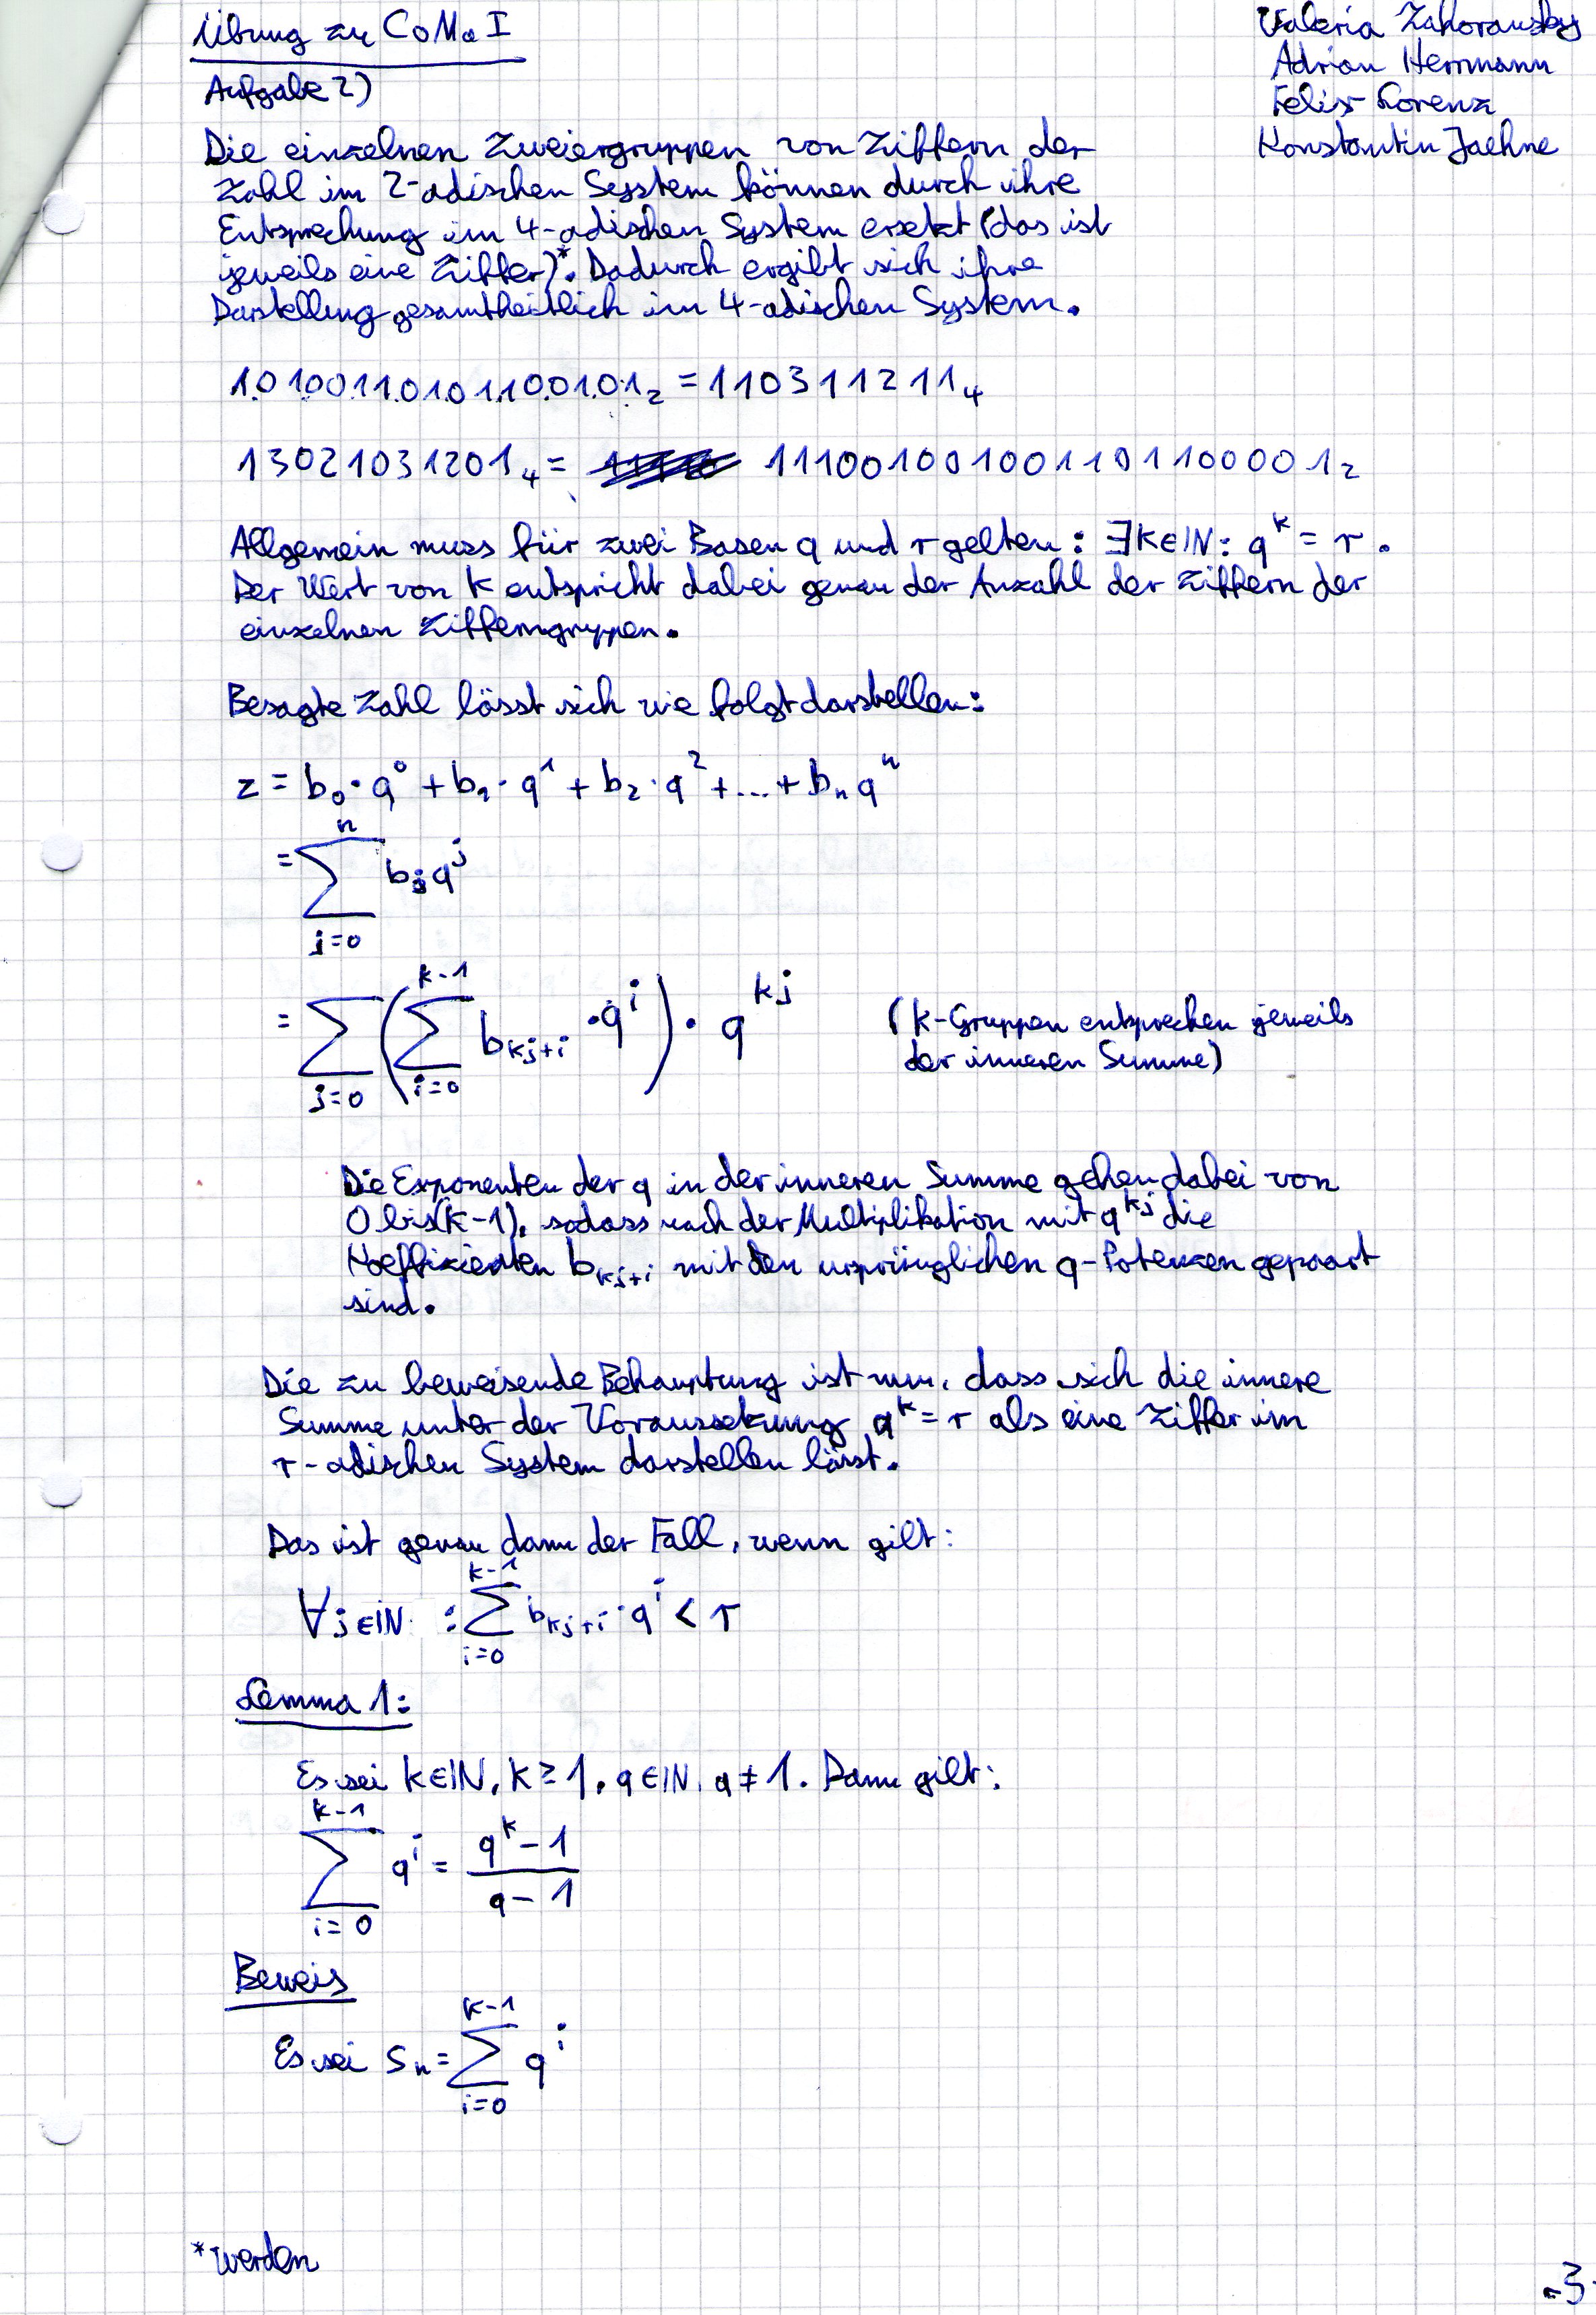 Übung zu CoMa I
Valeria Zahoransky
Adrian Herrmann
Felix Lorenz
Konstantin Jaehne
Aufgabe 2)
Die einzelnen Zweiergruppen von Ziffern der
Zahl im 2-adischen System können durch ihre
Entsprechung im 4-adischen System ersetzt (das ist
jeweils eine Ziffer)*. Dadurch ergibt sich ihre
Darstellung gesamtheitlich im 4-adischen System.
1010011010110010₁₂ = 1103112114
13021031201₄ = 111001001001101100001₂
Allgemein muss für zwei Basen q und r gelten: ∃k∈ℕ: q^k = r.
Der Wert von k entspricht dabei genau der Anzahl der Ziffern der
einzelnen Zifferngruppen.
Besagte Zahl lässt sich wie folgt darstellen:
z = b₀·q⁰ + b₁·q¹ + b₂·q² + ... + bₙqⁿ
= ∑_{j=0}^{n} b_j q^j
= ∑_{j=0} (∑_{i=0}^{k-1} b_{kj+i} · q^i) · q^{kj} (k-Gruppen entsprechen jeweils
der inneren Summe)
Die Exponenten der q in der inneren Summe gehen dabei von
0 bis (k-1), sodass nach der Multiplikation mit q^{kj} die
Koeffizienten b_{kj+i} mit den ursprünglichen q-Potenzen gepaart
sind.
Die zu beweisende Behauptung ist nun, dass sich die innere
Summe unter der Voraussetzung q^k = r als eine Ziffer im
r-adischen System darstellen lässt.
Das ist genau dann der Fall, wenn gilt:
∀j∈ℕ : ∑_{i=0}^{k-1} b_{kj+i} · q^i < r
Lemma 1:
Es sei k∈ℕ, k ≥ 1, q∈ℕ, q ≠ 1. Dann gilt:
∑_{i=0}^{k-1} q^i = (q^k - 1)/(q - 1)
Beweis
Es sei Sₙ = ∑_{i=0}^{k-1} q^i
*werden
-3-